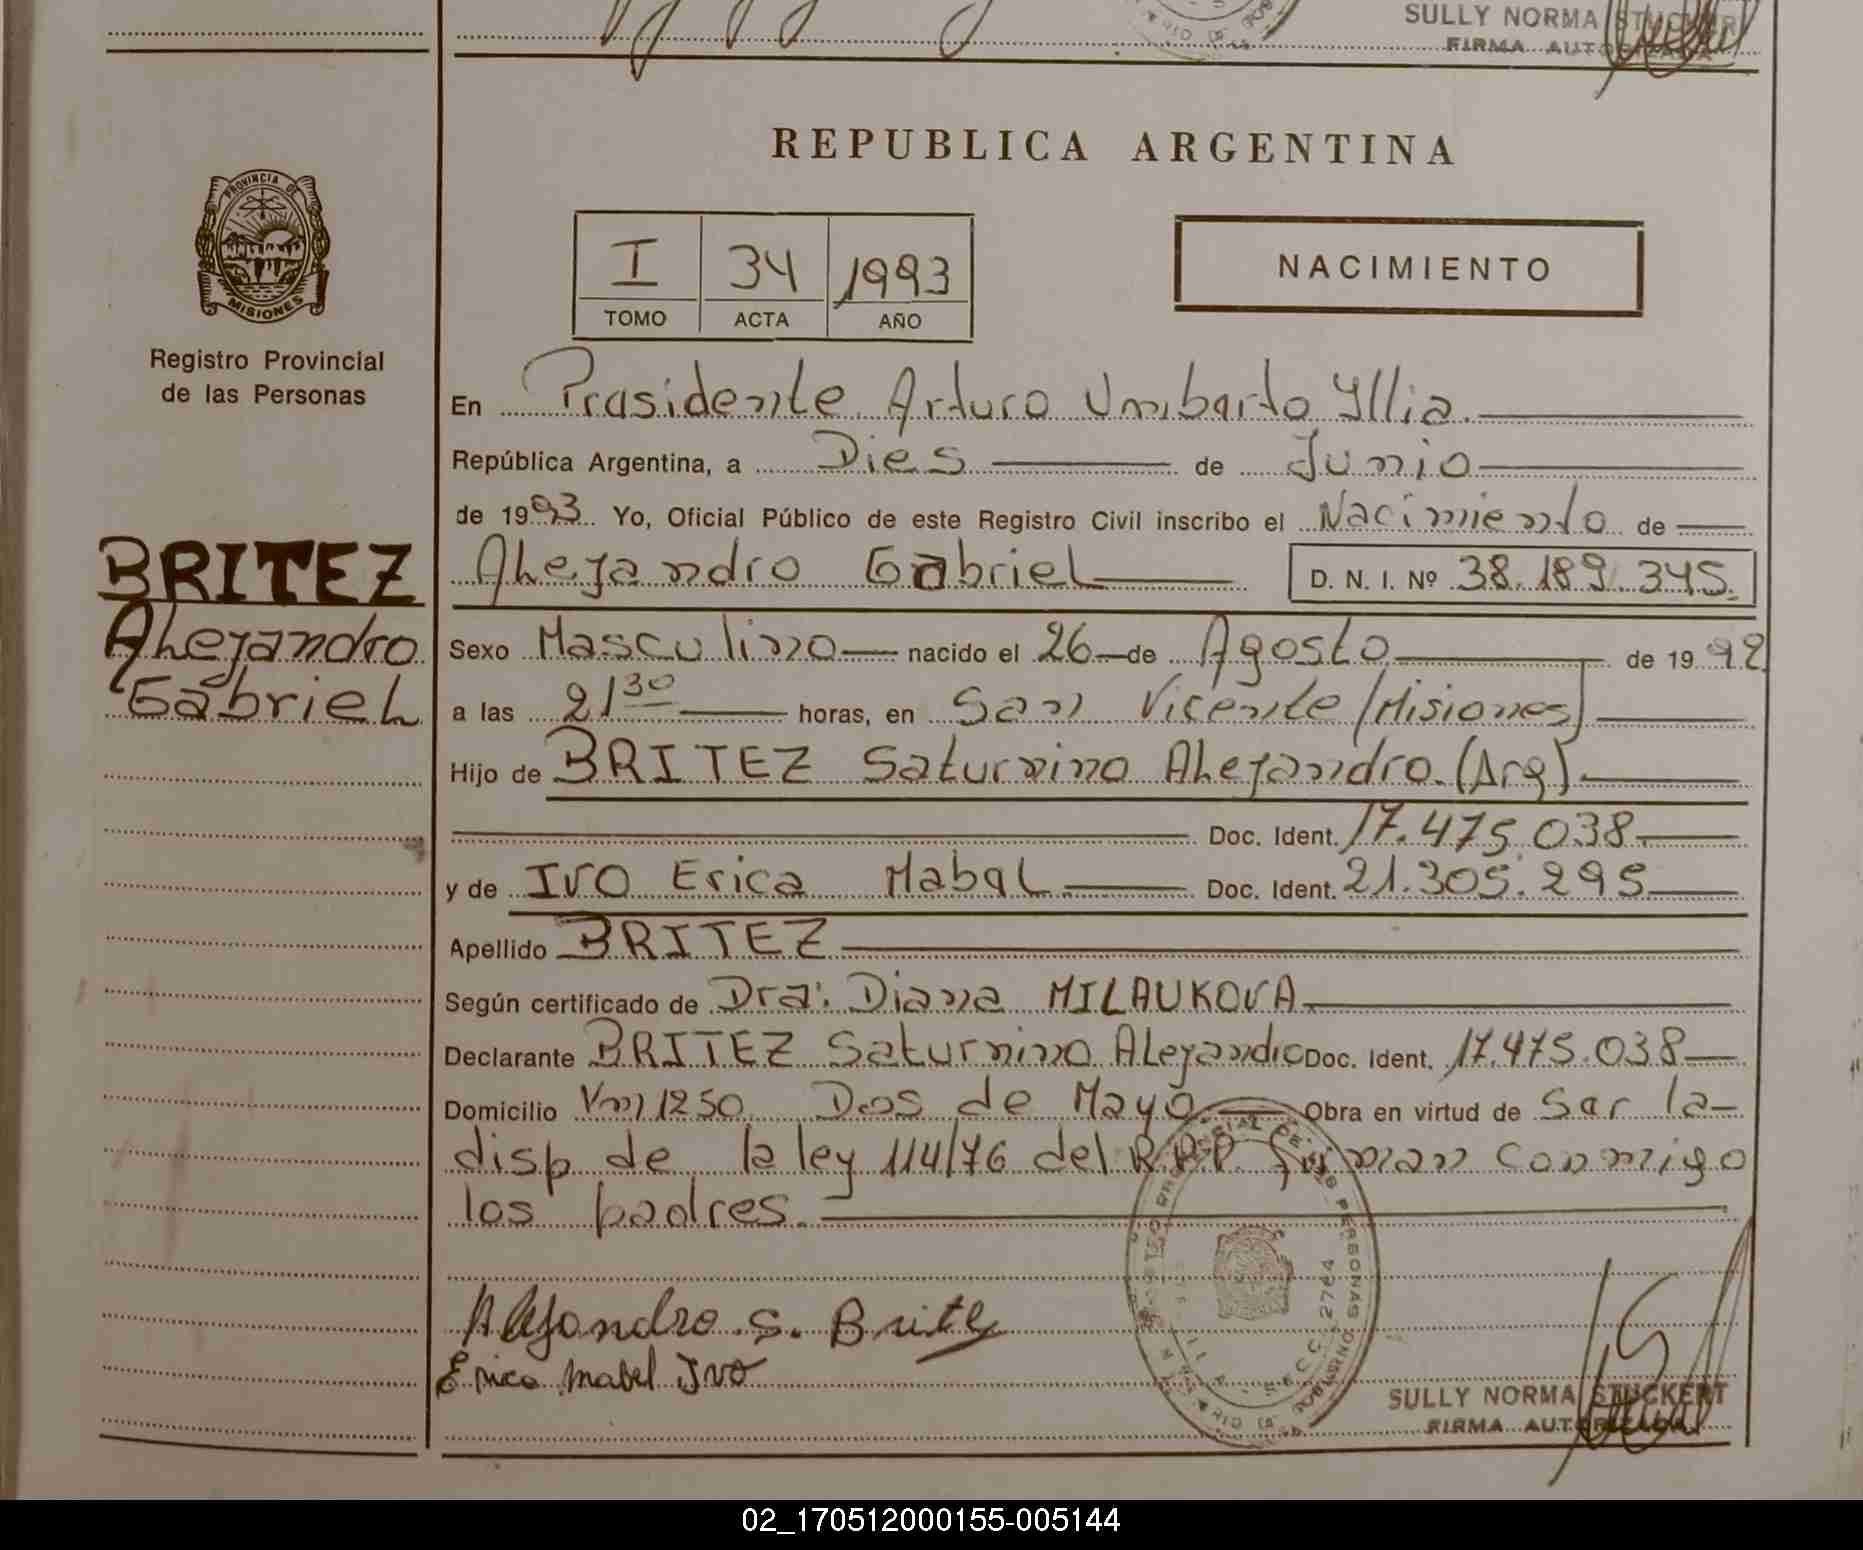 SULLY NORMA STUCKERT
FIRMA AUTORIZADA
REPUBLICA ARGENTINA
PROVINCIA DE
MISIONES
Registro Provincial
de las Personas
I 34 1993
TOMO ACTA AÑO
NACIMIENTO
En Presidente Arturo Umberto Yllia.
República Argentina, a Dies de Junio
de 1993. Yo, Oficial Público de este Registro Civil inscribo el Nacimiento de
BRITEZ
Alejandro
Gabriel
Alejandro Gabriel D. N. I. Nº 38.189.345.
Sexo Masculino nacido el 26 de Agosto de 1992
a las 21 30 horas, en San Vicente (Misiones)
Hijo de BRITEZ Saturnino Alejandro. (Arg)
Doc. Ident. 17.475.038
y de IVO Erica Mabel Doc. Ident. 21.305.295
Apellido BRITEZ
Según certificado de Dra: Diana MILAUKOVA
Declarante BRITEZ Saturnino Alejandro Doc. Ident. 17.475.038
Domicilio Vm 1250 Dos de Mayo Obra en virtud de Ser la
disp de la ley 114/76 del R.P.P. Firman conmigo
los padres.
Alejandro S. Britez
Erica Mabel Ivo
SULLY NORMA STUCKERT
FIRMA AUTORIZADA
02_170512000155-005144